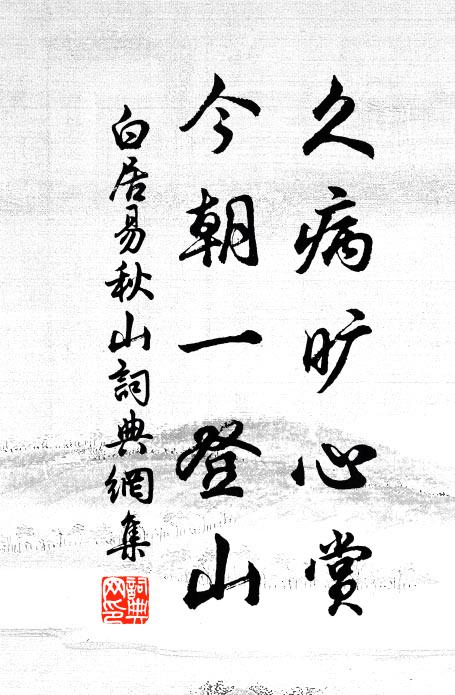 久病旷心赏
今朝一登山
白居易秋山詞典網集
詞典
网印